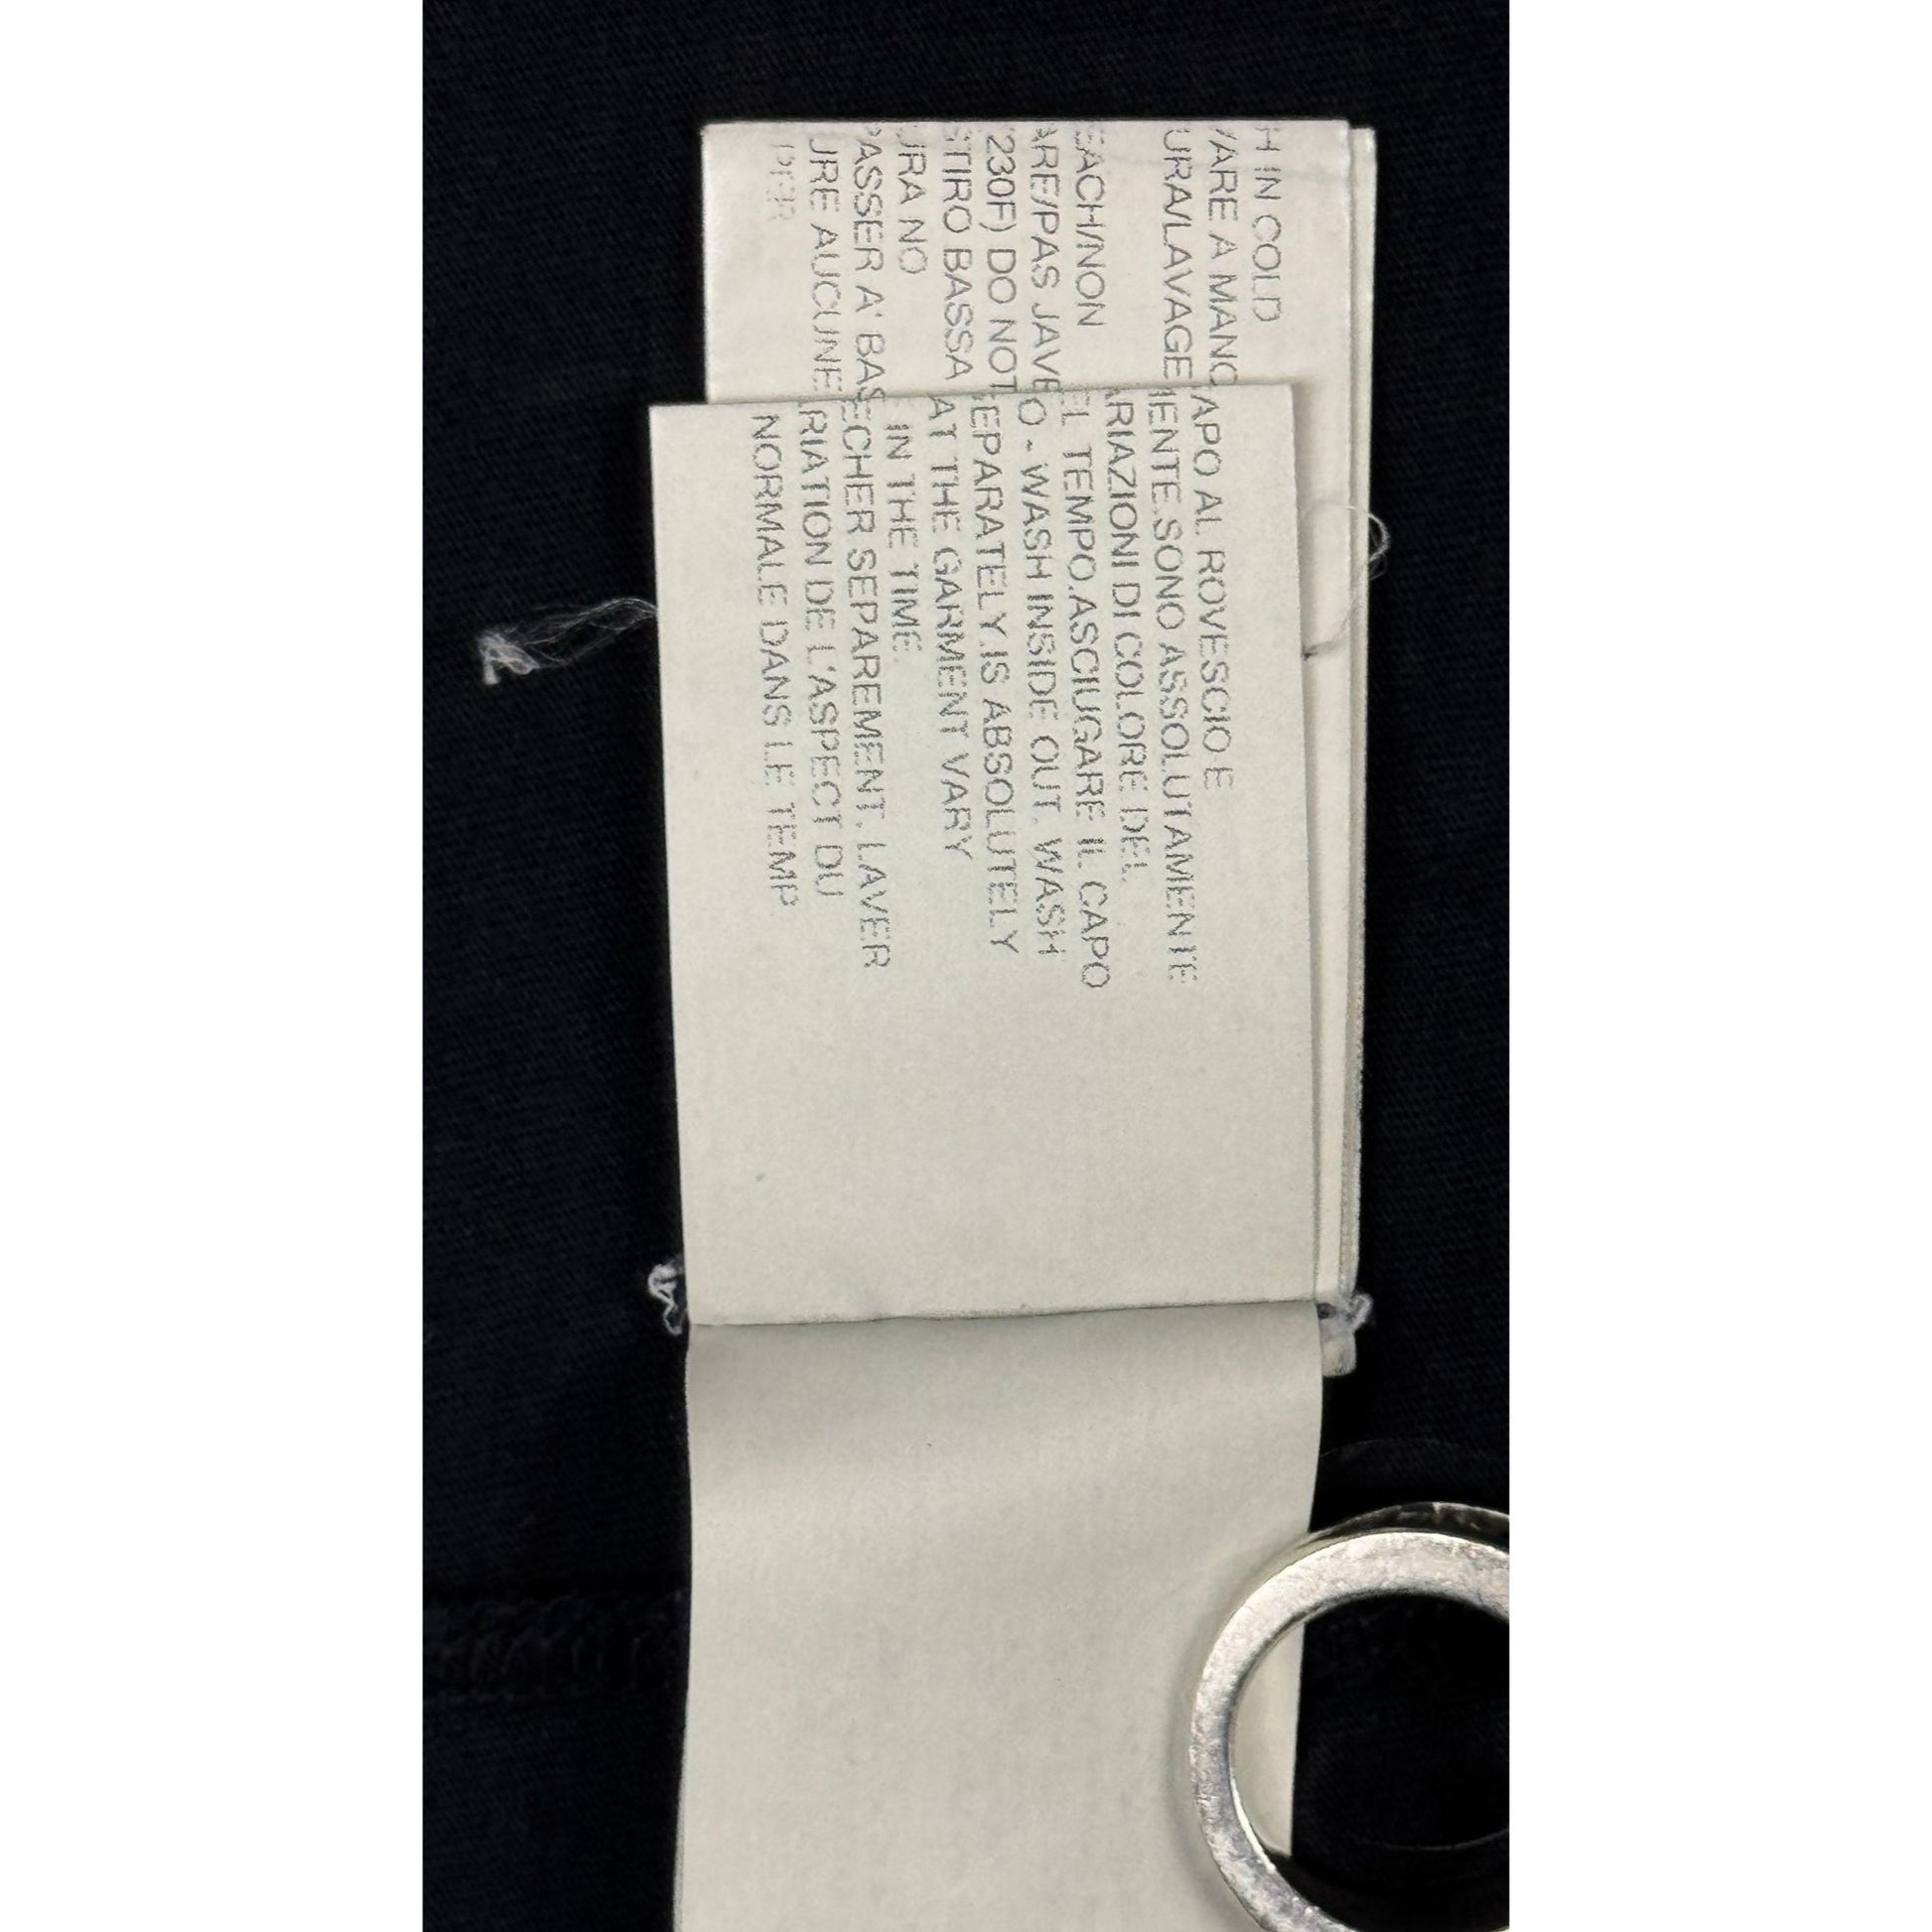 H IN COLD
VARE A MANO
URA/LAVAGE
EACH/NON
ARE/PAS JAVE
230F) DO NOT
STIRO BASSA
URA NO
PASSER A' BAS
URE AUCUNE
APO AL ROVESCIO E
IENTE.SONO ASSOLUTAMENTE
ARIAZIONI DI COLORE DEL
EL TEMPO.ASCIUGARE IL CAPO
O - WASH INSIDE OUT. WASH
EPARATELY.IS ABSOLUTELY
AT THE GARMENT VARY
IN THE TIME.
ECHER SEPAREMENT. LAVER
RIATION DE L'ASPECT DU
NORMALE DANS LE TEMP